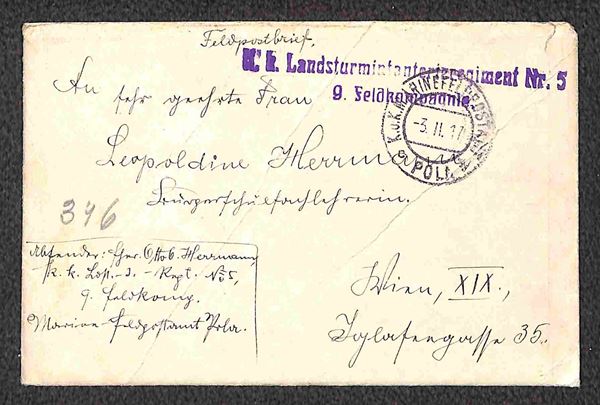 Feldpostbrief.
K. k. Landsturminfanterieregiment Nr. 5
9. Feldkompagnie
K.u.K. MARINEFELDPOSTAMT
-3. II. 17
POLA
An
sehr geehrte Frau
Leopoldine Herrmann
Bürgerschulfachlehrerin.
346
Absender: Otto B. Herrmann,
k. k. Lst. - J. - Regt. No 5,
9. Feldkomp.
Marine Feldpostamt Pola.
Wien, XIX.,
Iglaseegasse 35.